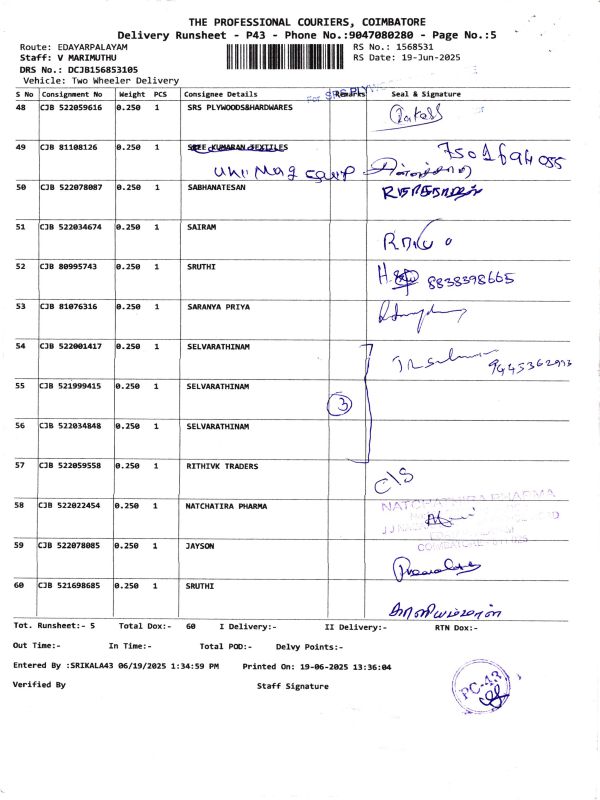 THE PROFESSIONAL COURIERS, COIMBATORE
Delivery Runsheet - P43 - Phone No.:9047080280 - Page No.:5
Route: EDAYARPALAYAM
Staff: V MARIMUTHU
DRS No.: DCJB156853105
Vehicle: Two Wheeler Delivery
RS No.: 1568531
RS Date: 19-Jun-2025
S No Consignment No Weight PCS Consignee Details Remarks Seal & Signature
For SRS PLYWO
48 CJB 522059616 0.250 1 SRS PLYWOODS&HARDWARES
49 CJB 81108126 0.250 1 SREE KUMARAN TEXTILES
7501694055
50 CJB 522078087 0.250 1 SABHANATESAN
51 CJB 522034674 0.250 1 SAIRAM
52 CJB 80995743 0.250 1 SRUTHI
8838398665
53 CJB 81076316 0.250 1 SARANYA PRIYA
54 CJB 522001417 0.250 1 SELVARATHINAM
55 CJB 521999415 0.250 1 SELVARATHINAM
3
56 CJB 522034848 0.250 1 SELVARATHINAM
57 CJB 522059558 0.250 1 RITHIVK TRADERS
C/S
58 CJB 522022454 0.250 1 NATCHATIRA PHARMA
NATCHATHIRA PHARMA
59 CJB 522078085 0.250 1 JAYSON
60 CJB 521698685 0.250 1 SRUTHI
Tot. Runsheet:- 5 Total Dox:- 60 I Delivery:- II Delivery:- RTN Dox:-
Out Time:- In Time:- Total POD:- Delvy Points:-
Entered By :SRIKALA43 06/19/2025 1:34:59 PM Printed On: 19-06-2025 13:36:04
Verified By Staff Signature
PC-43